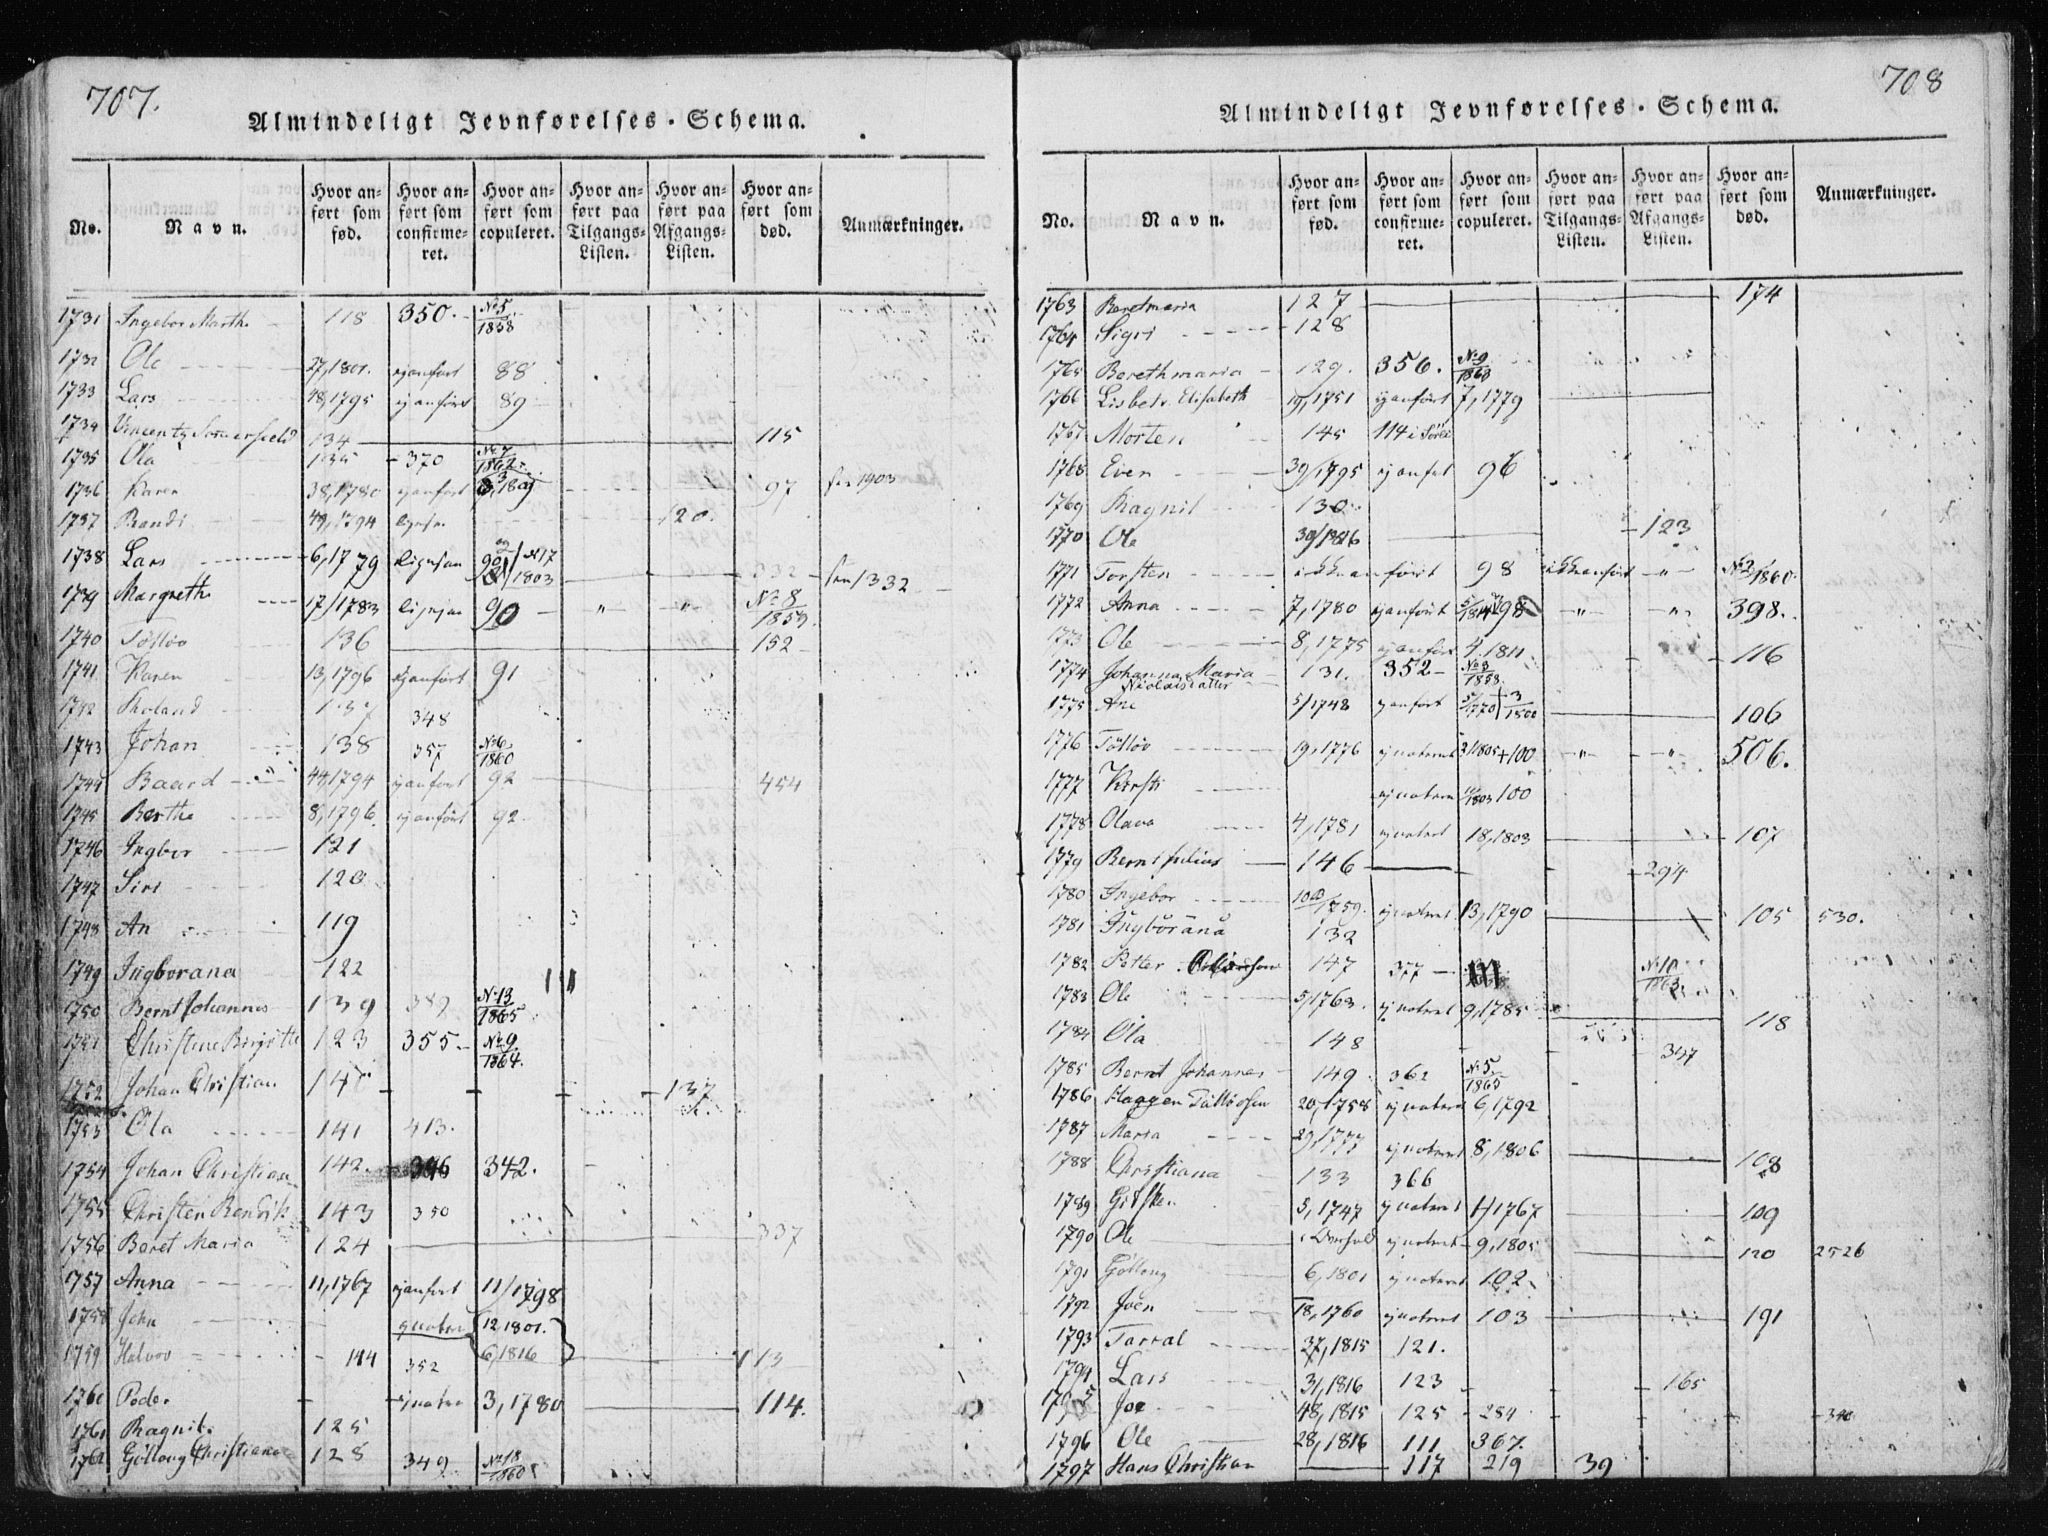 707.
Almindeligt Jevnførelses-Schema.
No. Navn. Hvor anført som fød. Hvor anført som confirmeret. Hvor anført som copuleret. Hvor anført paa Tilgangs-Listen. Hvor anført paa Afgangs-Listen. Hvor anført som død. Anmærkninger.
1731 Ingebor Marthe 118 350. No 5/1858
1732 Ole 27,1801. ejanført 88
1733 Lars 48,1795 ejanført 89
1734 134 115
1735 Ola 135 370 No 7/1862
1736 Karen 38,1780 ejanført 3,1809 97 1903
1737 Randi 49,1794 120.
1738 Lars 6,1779 ligesaa 90 No 17/1803 332 1332
1739 Margrethe 17/1783 ligesaa 90 " " No 8/1859.
1740 Tølløv 136 152
1741 Karen 13,1796 ejanført 91
1742 Roland 137 348
1743 Johan 138 357 No 6/1860
1744 Baard 44,1794 ejanført 92 454
1745 Berthe 8,1796. ejanført 92
1746 Ingbor 121
1747 Siri 120
1748 An 119
1749 Ingborana 122
1750 Bernt Johannes 139 389 No 13/1865
1751 Christine Birgitte 123 355. No 9/1864.
1752 Johan Christian 140 137
1753 Ola 141 413.
1754 Johan Christian 142. 346 342.
1755 Christen Bendik 143 350
1756 Beret Maria 124 337
1757 Anna 11,1767 ejanført 11/1798
1758 John 12,1801.
1759 Halvor 144 352 6,1816 113
1760 Peder 3,1780 114.
1761 Ragnil 125
1762 Gølloug Christiana 128 349 No 18/1860
708
Almindeligt Jevnførelses-Schema.
No. Navn. Hvor anført som fød. Hvor anført som confirmeret. Hvor anført som copuleret. Hvor anført paa Tilgangs-Listen. Hvor anført paa Afgangs-Listen. Hvor anført som død. Anmærkninger.
1763 Beretmaria 127 174
1764 Sigri 128
1765 Berethmaria 129. 356. No 9/1860
1766 Lisbet Elisabeth 19,1751 ejanført 7,1779
1767 Morten 145 114 i
1768 Even 39/1795 ejanført 96
1769 Ragnil 130.
1770 Ole 39/1816 123
1771 Torsten ikke anført 98 ikke anført " No 2/1860.
1772 Anna 7,1780 ejanført 98 " " 398.
1773 Ole 8,1775 ejanført 4,1811 116
1774 Johanna Maria Nicolaisdatter 131. 352 No 3/1858.
1775 Ane 5/1748 ejanført 5/1770 3/1800 106
1776 Tølløv 19,1776 ejnoteret 3/1805+100 " " 506.
1777 Kirsti ejnoteret 11/1803 100
1778 Olava 4,1781 ejnoteret 18,1803 107
1779 Bernt Julius 146 294
1780 Ingebor 1759. ejnoteret 13,1790 105 530.
1781 Ingborana 132
1782 Petter 147 377 No 10/1863.
1783 Ole 5/1763. ejnoteret 9,1785 118
1784 Ola 148 347
1785 Bernt Johannes 149 362 No 5./1865
1786 Haagen Tølløvsen 20,1758 ejnoteret 6,1792
1787 Maria 29,1777 ejnoteret 8,1806 108
1788 Christiana 133 366
1789 Gitsken 5,1747 ejnoteret 1/1767 109
1790 Ole ejnoteret 9,1805 120 2526
1791 Gølloug 6,1801 ejnoteret 102.
1792 Joen 18,1760 ejnoteret 103 191
1793 Tarral 37,1815 121.
1794 Lars 31,1816 123 165
1795 Joe 48,1815 125 284 340
1796 Ole 28,1816 111 367.
1797 Hans Christian 117 219 39